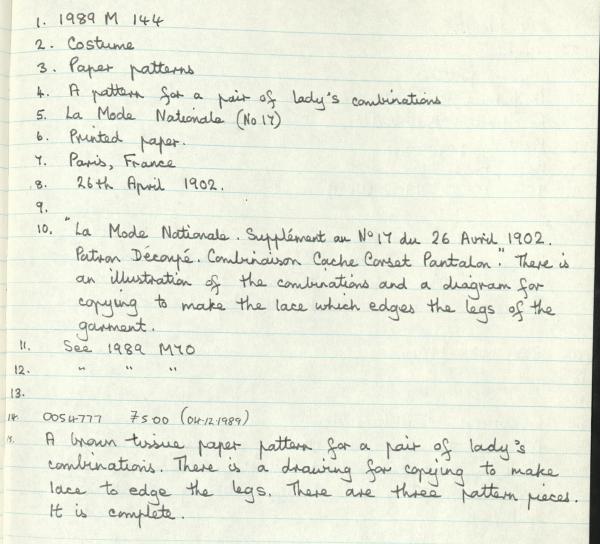 1. 1989 M 144
2. Costume
3. Paper patterns
4. A pattern for a pair of lady's combinations
5. La Mode Nationale (No 17)
6. Printed paper.
7. Paris, France
8. 26th April 1902.
9.
10. "La Mode Nationale. Supplément au No 17 du 26 Avril 1902.
Patron Découpé. Combinaison Cache Corset Pantalon." There is
an illustration of the combinations and a diagram for
copying to make the lace which edges the legs of the
garment.
11. See 1989 M70
12. " " "
13.
14. 0054777 7500 (04-12-1989)
15. A brown tissue paper pattern for a pair of lady's
combinations. There is a drawing for copying to make
lace to edge the legs. There are three pattern pieces.
It is complete.